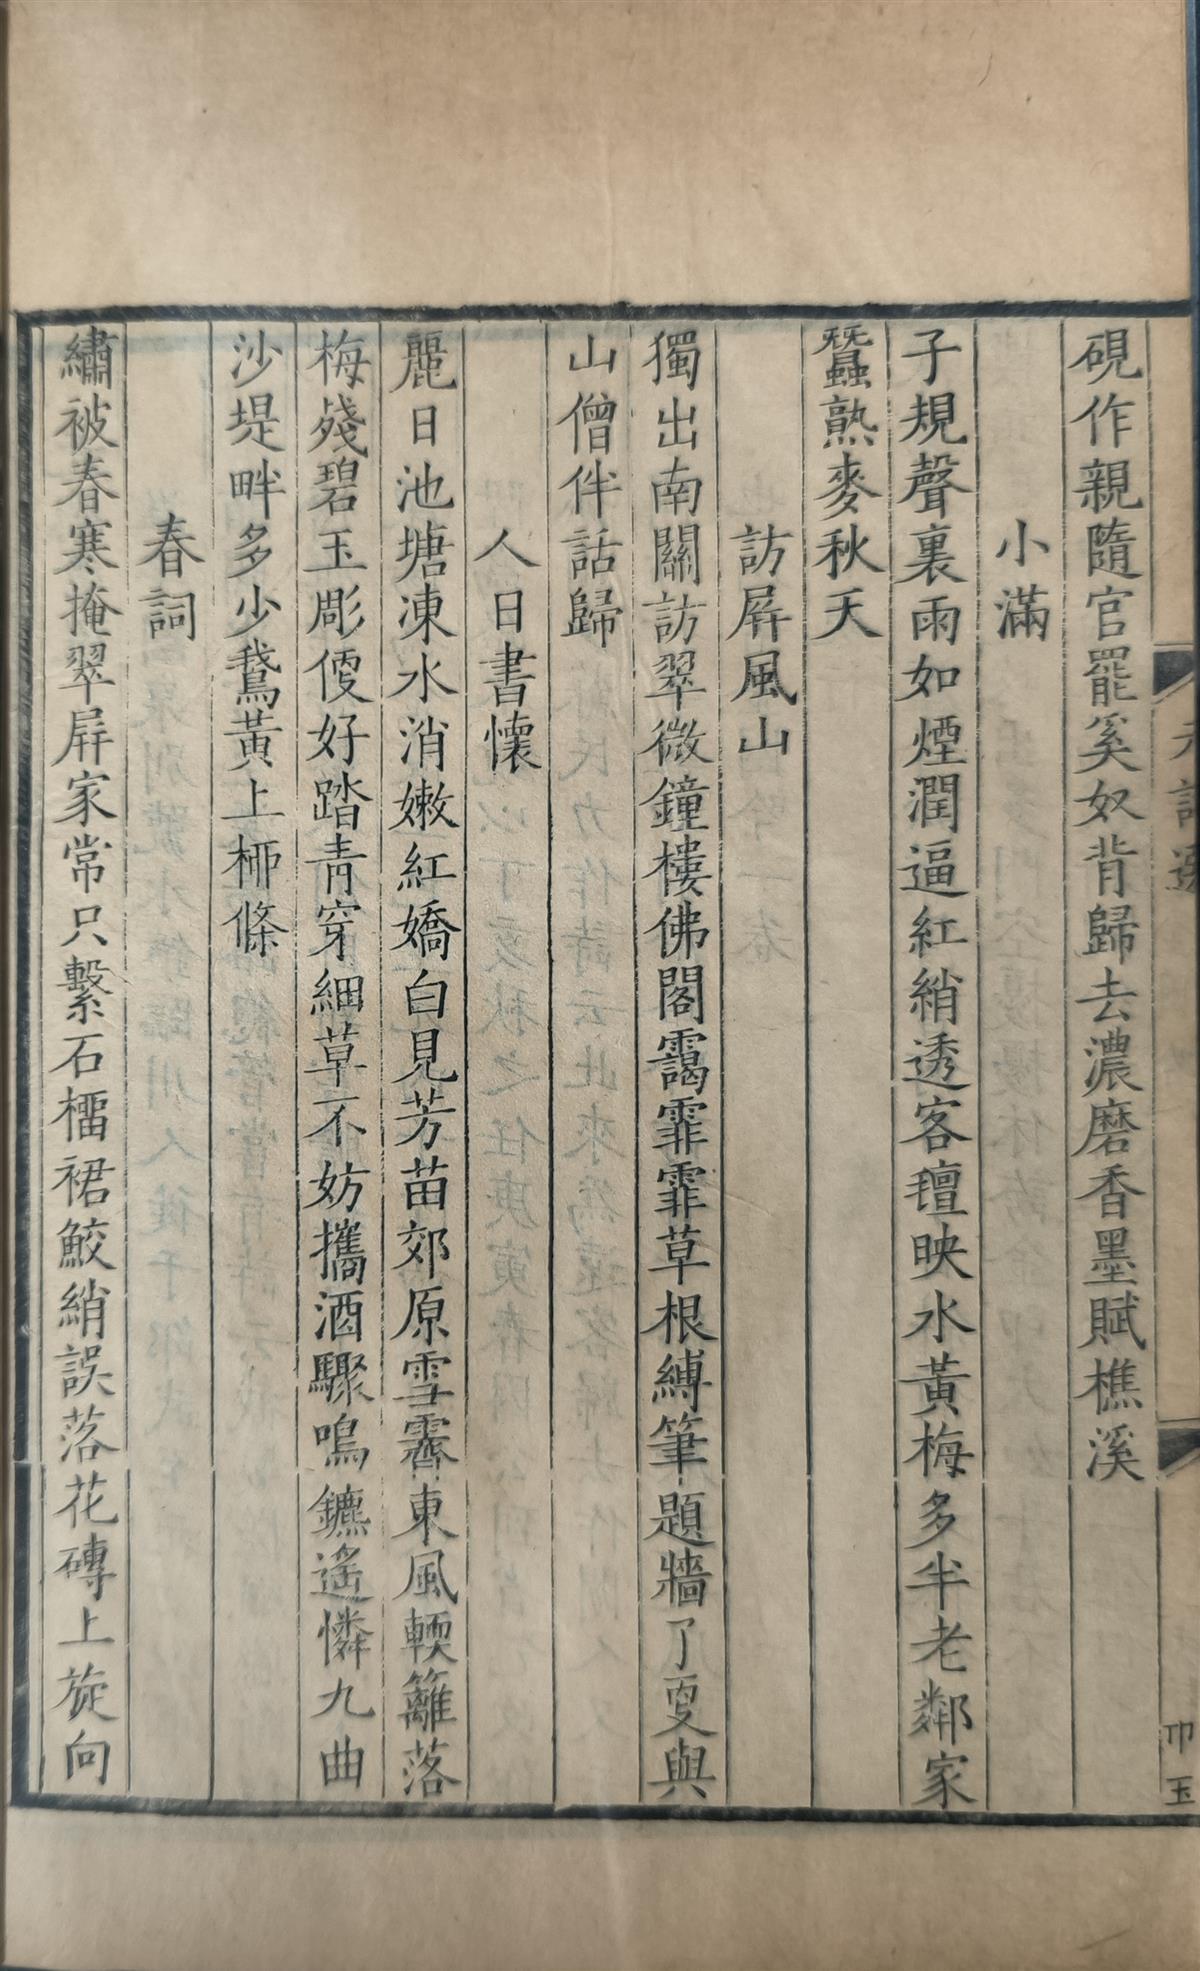 硯作親隨官罷奚奴背歸去濃磨香墨賦樵溪
小滿
子規聲裏雨如煙潤逼紅綃透客氊映水黃梅多半老鄰家
蠶熟麥秋天
訪屏風山
獨出南關訪翠微鐘樓佛閣靄霏霏草根縛筆題牆了更與
山僧伴話歸
人日書懷
麗日池塘凍水消嫩紅嬌白見芳苗郊原雪霽東風輭籬落
梅殘碧玉彫便好踏青穿細草不妨攜酒驟鳴鑣遙憐九曲
沙堤畔多少鵞黃上栁條
春詞
繡被春寒掩翠屏家常只繫石榴裙鮫綃誤落花磚上旋向